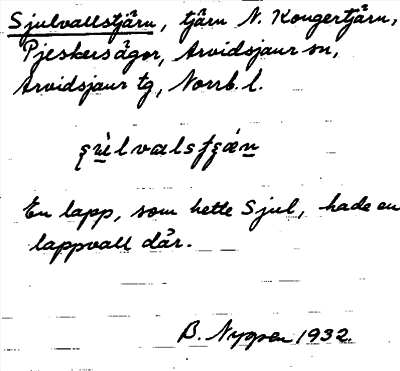 Sjulvallstjärn, tjärn N. Kongertjärn,
Pjeskersägor, Arvidsjaur sn,
Arvidsjaur tg, Norrb. l.
En lapp, som hette Sjul, hade en
lappvall där.
B. Nygren 1932.